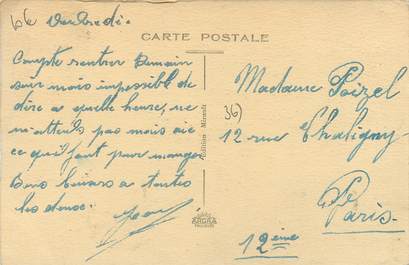 Vendredi.
CARTE POSTALE
Compte rentrer Demain
sur mais impossible de
dire a quelle heure, ne
m'attends pas mais aie
ce qu'il faut pour manger
Bons baisers a toutes
les deux.
Jean
Editions Mireille
ARGRA
Madame Poizel
36)
12 rue Chaligny
Paris.
12ème